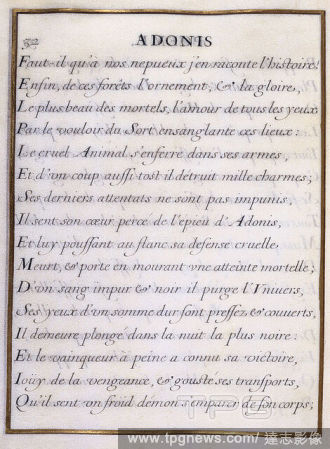 52
ADONIS
Faut-il qu'à nos nepueux j'en raconte l'histoire!
Enfin, de ces forêts l'ornement, & la gloire,
Le plus beau des mortels, l'amour de tous les yeux,
Par le vouloir du Sort ensanglante ces lieux:
Le cruel Animal s'enferre dans ses armes,
Et d'vn coup aussi-tost il détruit mille charmes;
Ses derniers attentats ne sont pas impunis,
Il sent son cœur percé de l'épieu d'Adonis,
Et luy poussant au flanc sa défense cruelle,
Meurt, & porte en mourant vne atteinte mortelle;
D'vn sang impur & noir il purge l'Vnivers,
Ses yeux d'vn somme dur sont pressez & couverts,
Il demeure plongé dans la nuit la plus noire:
Et le vainqueur à peine a connu sa victoire,
Joüy de la vengeance, & gousté ses transports,
Qu'il sent vn froid démon s'emparer de son corps;
TPG
www.tpgnews.com / 達志影像